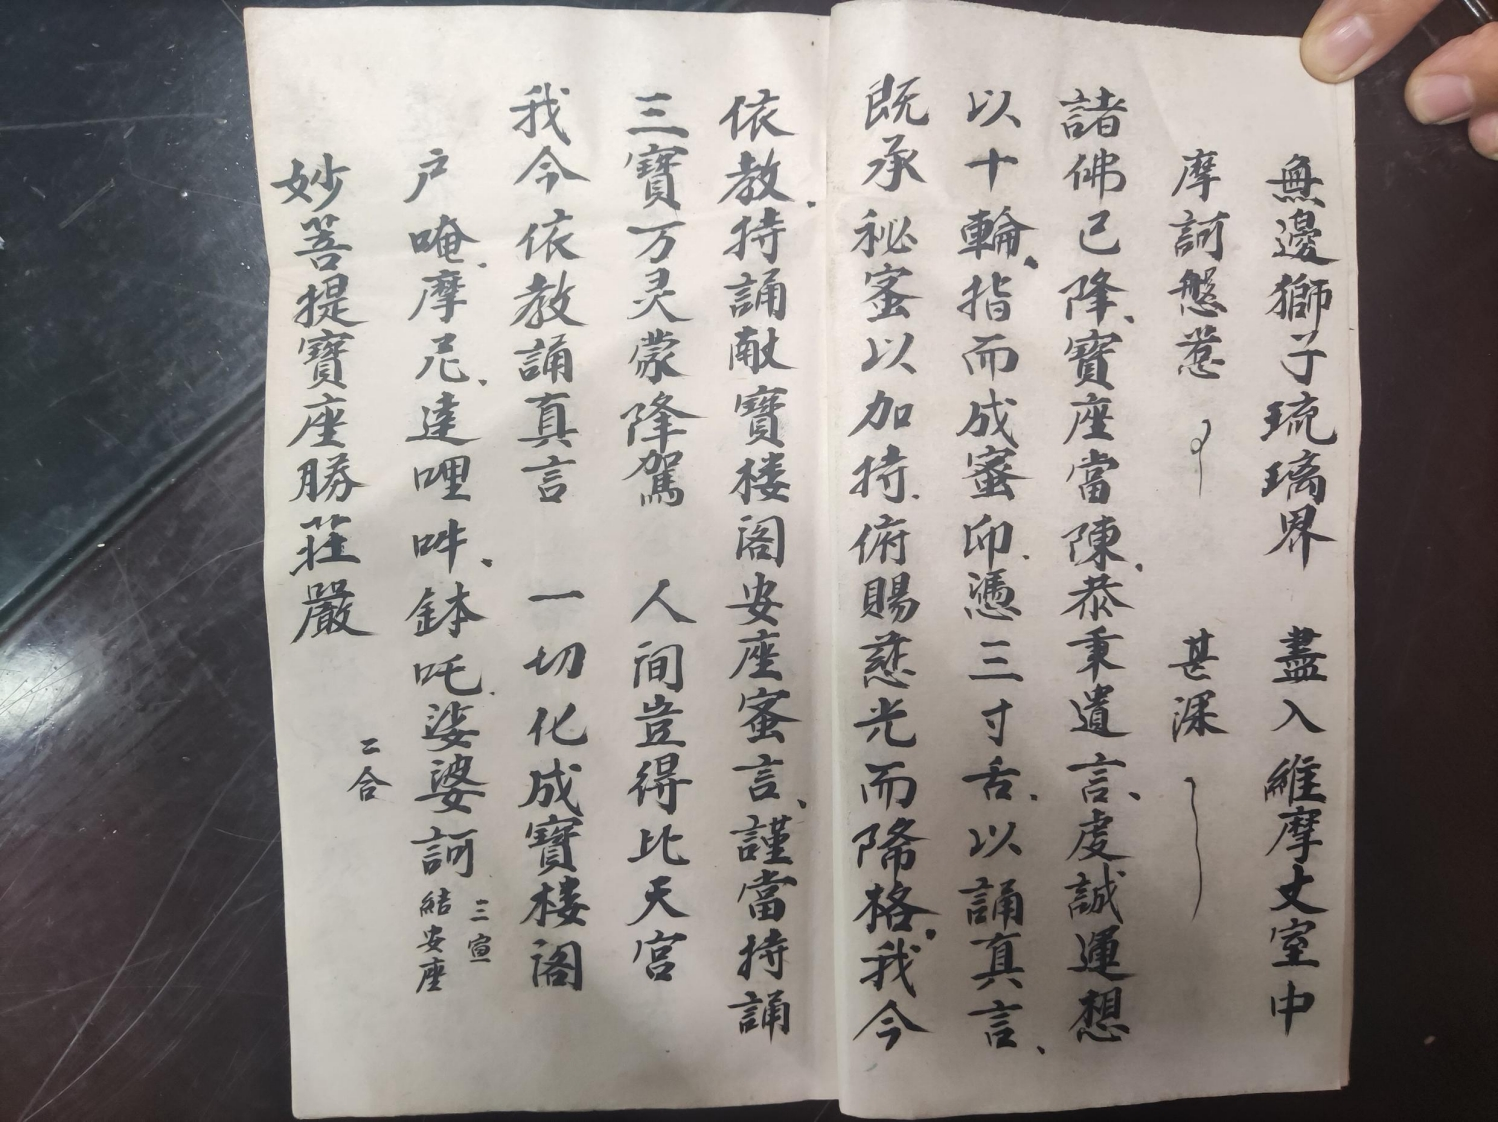 無邊獅子琉璃界　盡入維摩丈室中
摩訶　甚深
諸佛已降、寶座當陳、恭秉遺言、虔誠運想
以十輪、指而成蜜印、憑三寸舌、以誦真言、
既承秘蜜以加持、俯賜慈光而降格、我今
依教、持誦献寶楼阁安座蜜言、謹當持誦
三寶万灵蒙降駕　人间豈得比天宮
我今依教誦真言　一切化成寶楼阁
戸唵、摩尼、達哩吽、鉢吒、娑婆訶 三宣 結安座
二合
妙菩提寶座勝莊嚴